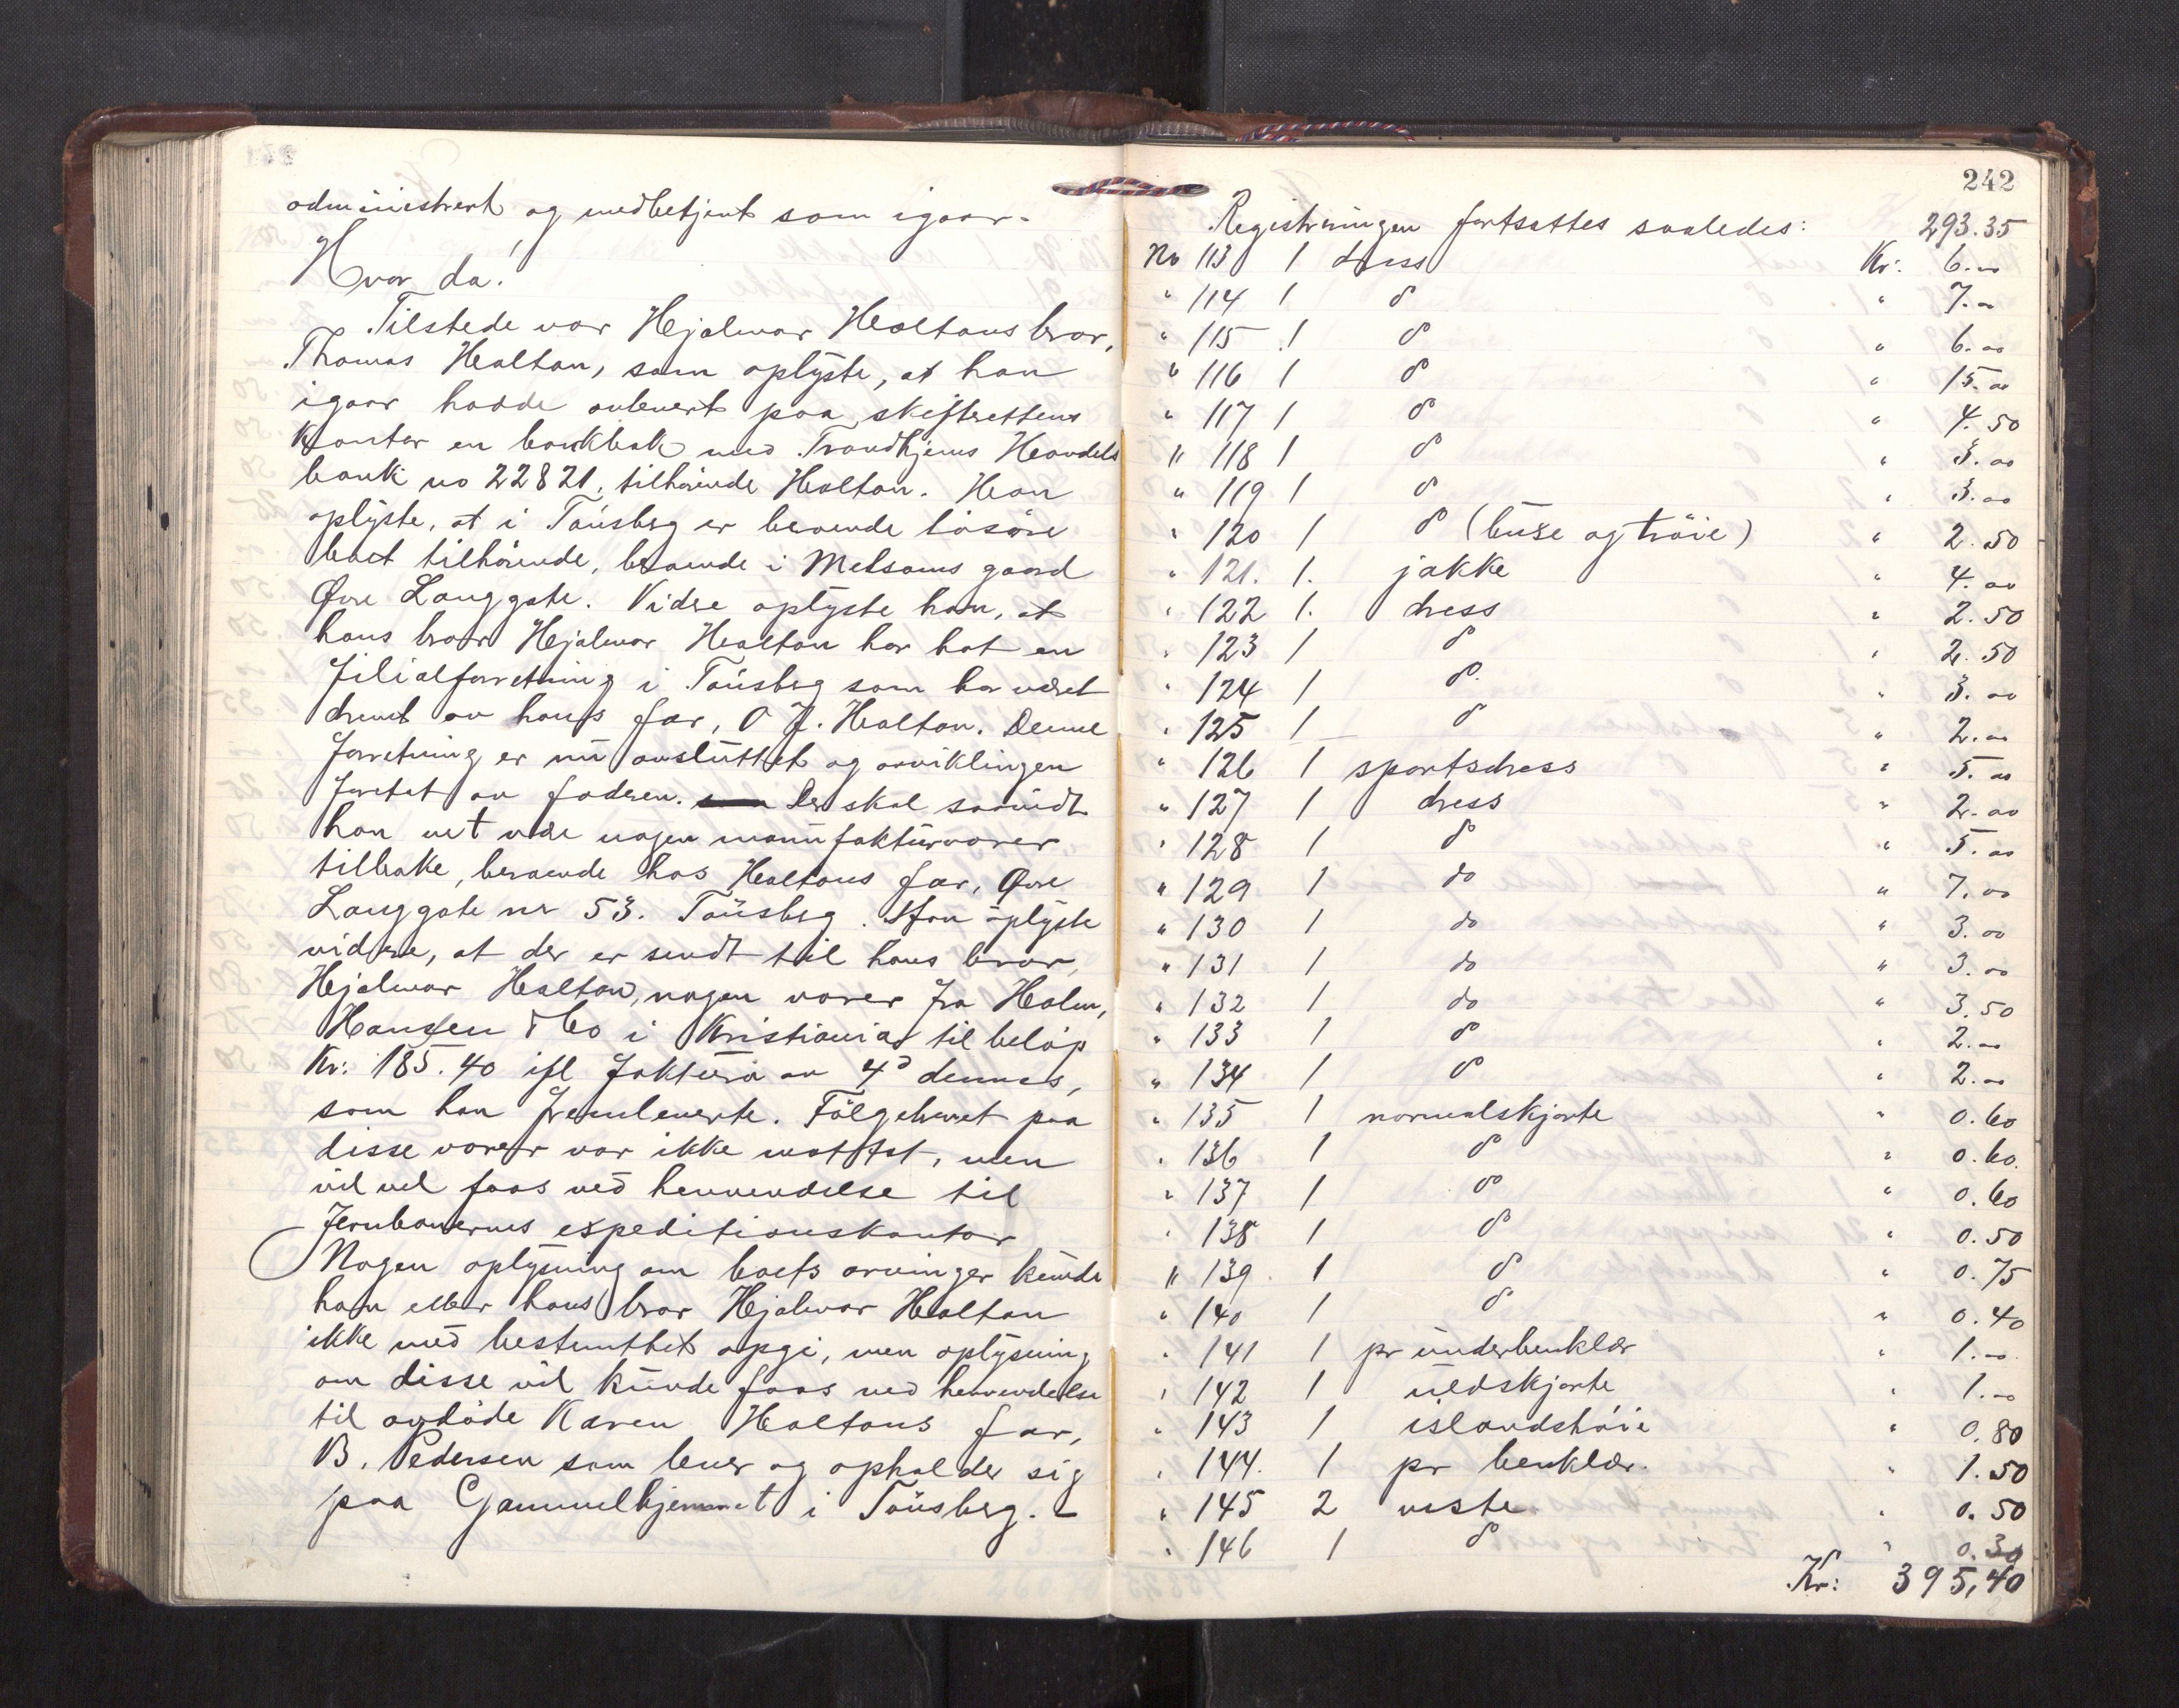 administrert og medbetjent som igaar.
Hvor da!
Tilstede var Hjalmar Holtans bror,
Thomas Holtan, som oplyste, at han
igaar hadde avlevert paa skifterettens
kontor en bankbok med Trondhjems Handels
bank no 22821, tilhørende Holtan. Han
oplyste, at i Tønsberg er beroende løsøre
boet tilhørende, beroende i Melsoms gaard
Øvre Langgate. Videre oplyste han, at
hans bror Hjalmar Holtan har hat en
filialforretning i Tønsberg som har været
drevet av hans far, O J. Holtan. Denne
forretning er nu avsluttet og avviklingen
foretat av faderen. Der skal saavidt
han vet være nogen manufakturvarer
tilbake, beroende hos Holtans far, Øvre
Langgate nr 53. Tønsberg. Han oplyste
videre, at der er sendt til hans bror,
Hjalmar Holtan, nogen varer fra Holm,
Hansen & Co i Kristiania til beløp
Kr: 185.40 ifl faktura av 4d dennes,
som han fremleverte. Følgebrevet paa
disse varer var ikke mottat, men
vil vel faas ved henvendelse til
Jernbanernes expeditionskontor
Nogen oplysning om boets arvinger kunde
han eller hans bror Hjalmar Holtan
ikke med bestemthet opgi, men oplysning
om disse vil kunde faas ved henvendelse
til avdøde Karen Holtans far,
B. Pedersen som lever og opholder sig
paa Gammelhjemmet i Tønsberg. -
242
Registreringen fortsattes saaledes: 293.35
No 113 1 dress Kr: 6.00
" 114 1 do " 7.00
" 115 1 do " 6.00
" 116 1 do " 15.00
" 117 1 do " 4.50
" 118 1 do " 3.00
" 119 1 do " 3.00
" 120 1 do (buxe og trøie) " 2.50
" 121. 1. jakke " 4.00
" 122 1. dress " 2.50
" 123 1 do " 2.50
" 124 1 do " 3.00
" 125 1 do " 2.00
" 126 1 sportsdress " 5.00
" 127 1 dress " 2.00
" 128 1 do " 5.00
" 129 1 do " 7.00
" 130 1 do " 3.00
" 131 1 do " 3.00
" 132 1 do " 3.50
" 133 1 do " 2.00
" 134 1 do " 2.00
" 135 1 normalskjorte " 0.60
" 136 1 do " 0.60.
" 137 1 do " 0.60
" 138 1 do " 0.50
" 139 1 do " 0.75
" 140 1 do " 0.40
" 141 1 pr underbenklær " 1.00
" 142 1 uldskjorte " 1.00
" 143 1 islandstrøie " 0.80
" 144. 1 pr benklær. " 1.50
" 145 2 veste " 0.50
" 146 1 do " 0.30
Kr: 395,40